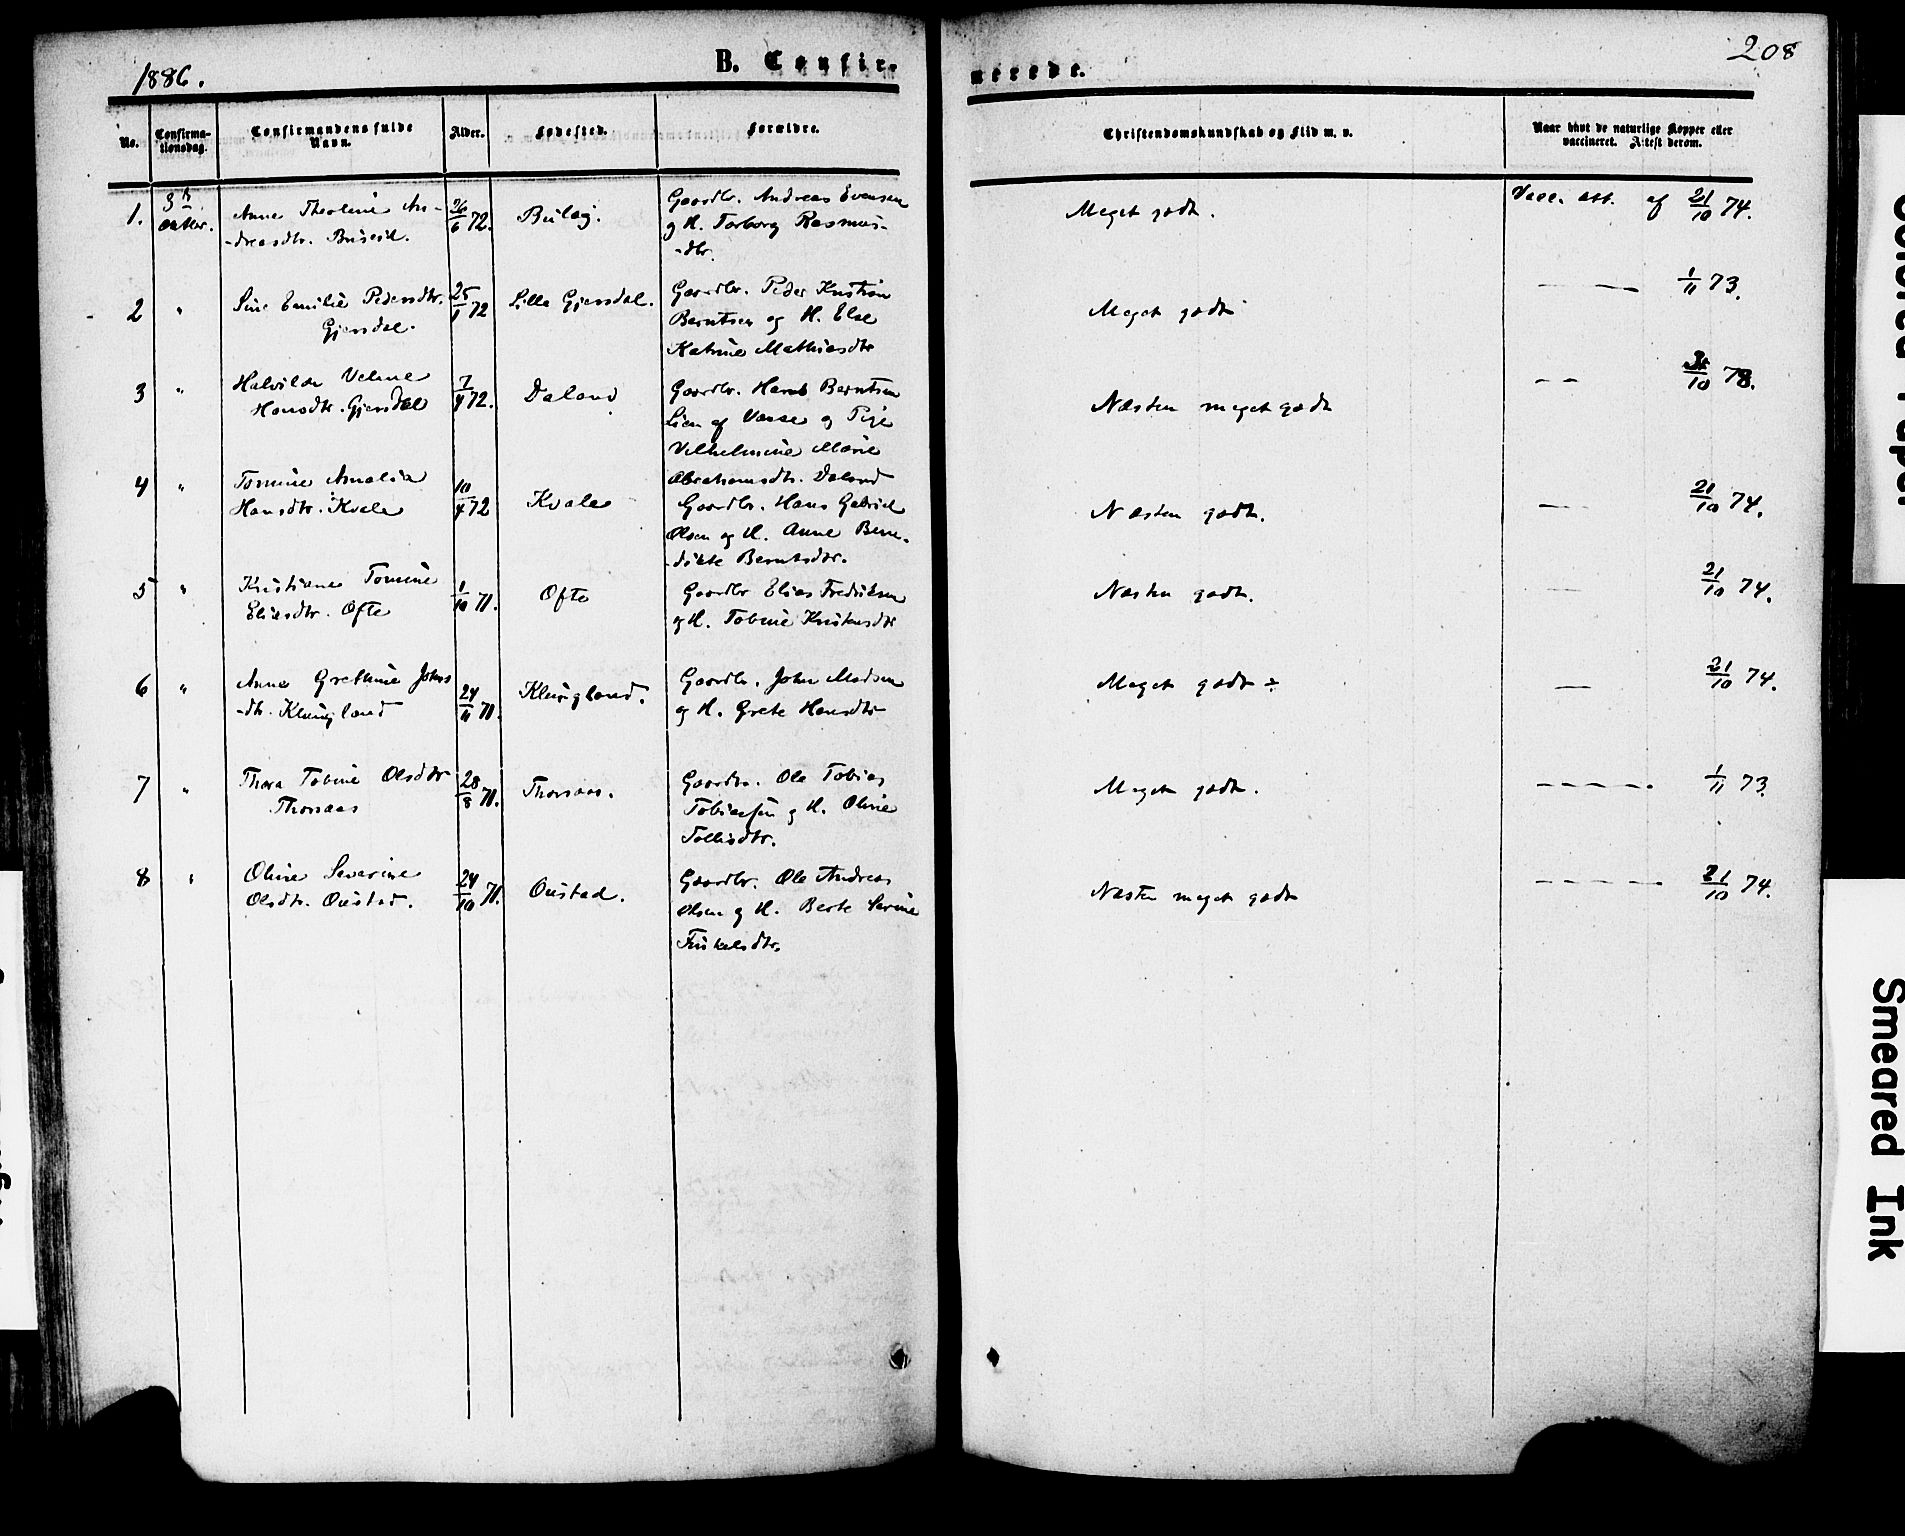 1886.
B. Confir-
merede.
208
No.
Confirma-
tionsdag.
Confirmandens fulde
Navn.
Alder.
Fødested.
Forældre.
Christendomskundskab og Flid m. v.
Naar havt de naturlige Kopper eller
vaccineret. Attest derom.
1.
3die
Oktbr.
Anne Theoline An-
-dreasdtr.
26/6 72.
Gaardbr. Andreas Evensen
og H. Torborg Rasmus-
-dtr.
Meget godt.
Vacc. att. af 21/10 74.
2
"
Sine Emilie Pedersdtr.
Gjersdal.
25/1 72
Lille Gjersdal.
Gaardbr. Peder Kristian
Berntsen og H. Else
Katrine Mathiasdtr
Meget godt
— — 1/11 73.
3
"
Halvilde Velene
Hansdtr. Gjersdal
7/4 72.
Daland
Gaardbr. Hans Berntsen
Lien af Vanse og Pige
Vilhelmine Marie
Abrahamsdtr. Daland
Næsten meget godt
— — /10 78.
4
"
Tomine Amalia
Hansdtr. Kvale
10/4 72
Kvale
Gaardbr. Hans Gabriel
Olsen og H. Anne Bene-
-dikte Berntsdtr.
Næsten godt.
— — 21/10 74.
5
"
Kristiane Tomine
Eliasdtr. Ofte
1/10 71.
Ofte
Gaardbr Elias Fredriksen
og H. Tobine Kristensdtr
Næsten godt.
— 21/10 74.
6
"
Anne Grethine Johns
-dtr. Klungland
24/11 71.
Klungland.
Gaardbr. John Madsen
og H. Grete Hansdtr
Meget godt ÷
— 21/10 74.
7
"
Thora Tobine Olsdtr
Thorsaas
28/8 71.
Thorsaas.
Gaardbr. Ole Tobias
Tobiassen og H. Oline
Tollisdtr.
Meget godt.
— — — — 1/11 73.
8
"
Oline Severine
Olsdtr. Oustad.
24/10 71.
Oustad.
Gaardbr. Ole Andreas
Olsen og H. Berte Serine
Næsten meget godt
— — — — 21/10 74.
Smeared Ink